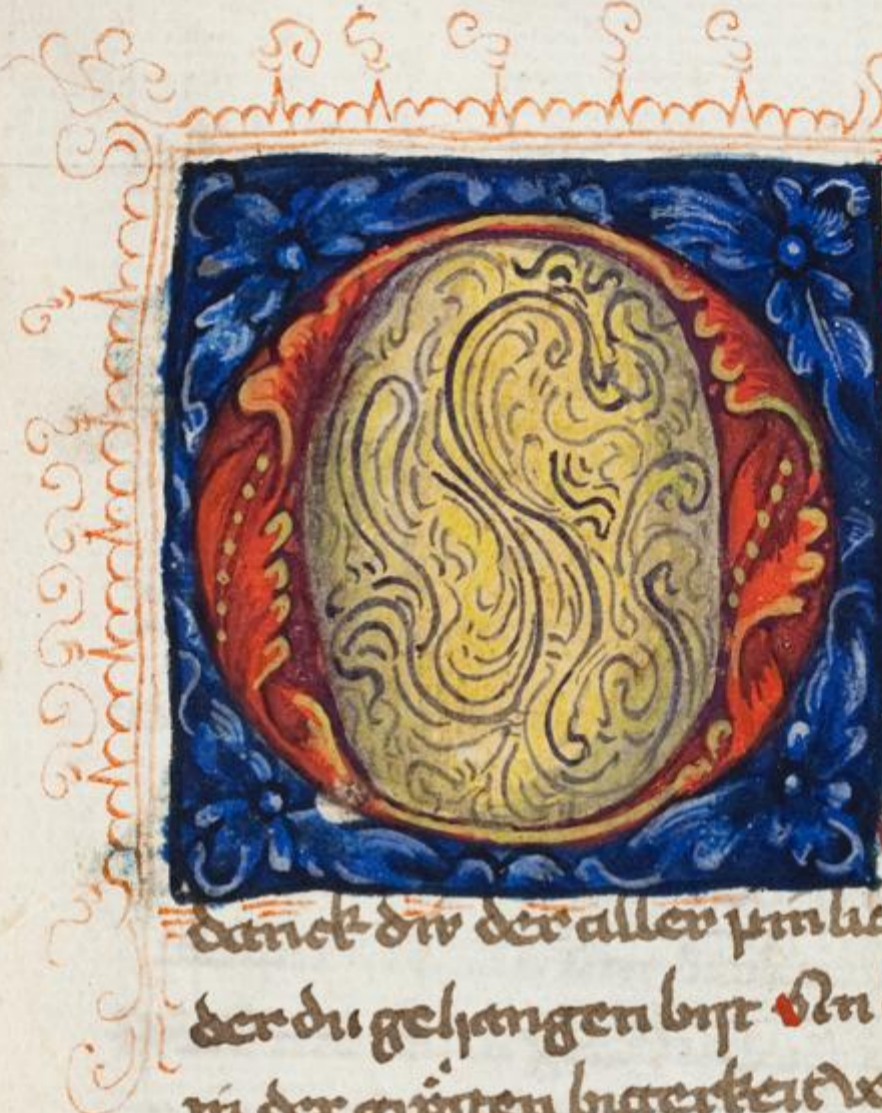 O
danck dir der aller
der du gehangen bist An
in der grösten bitterkeit